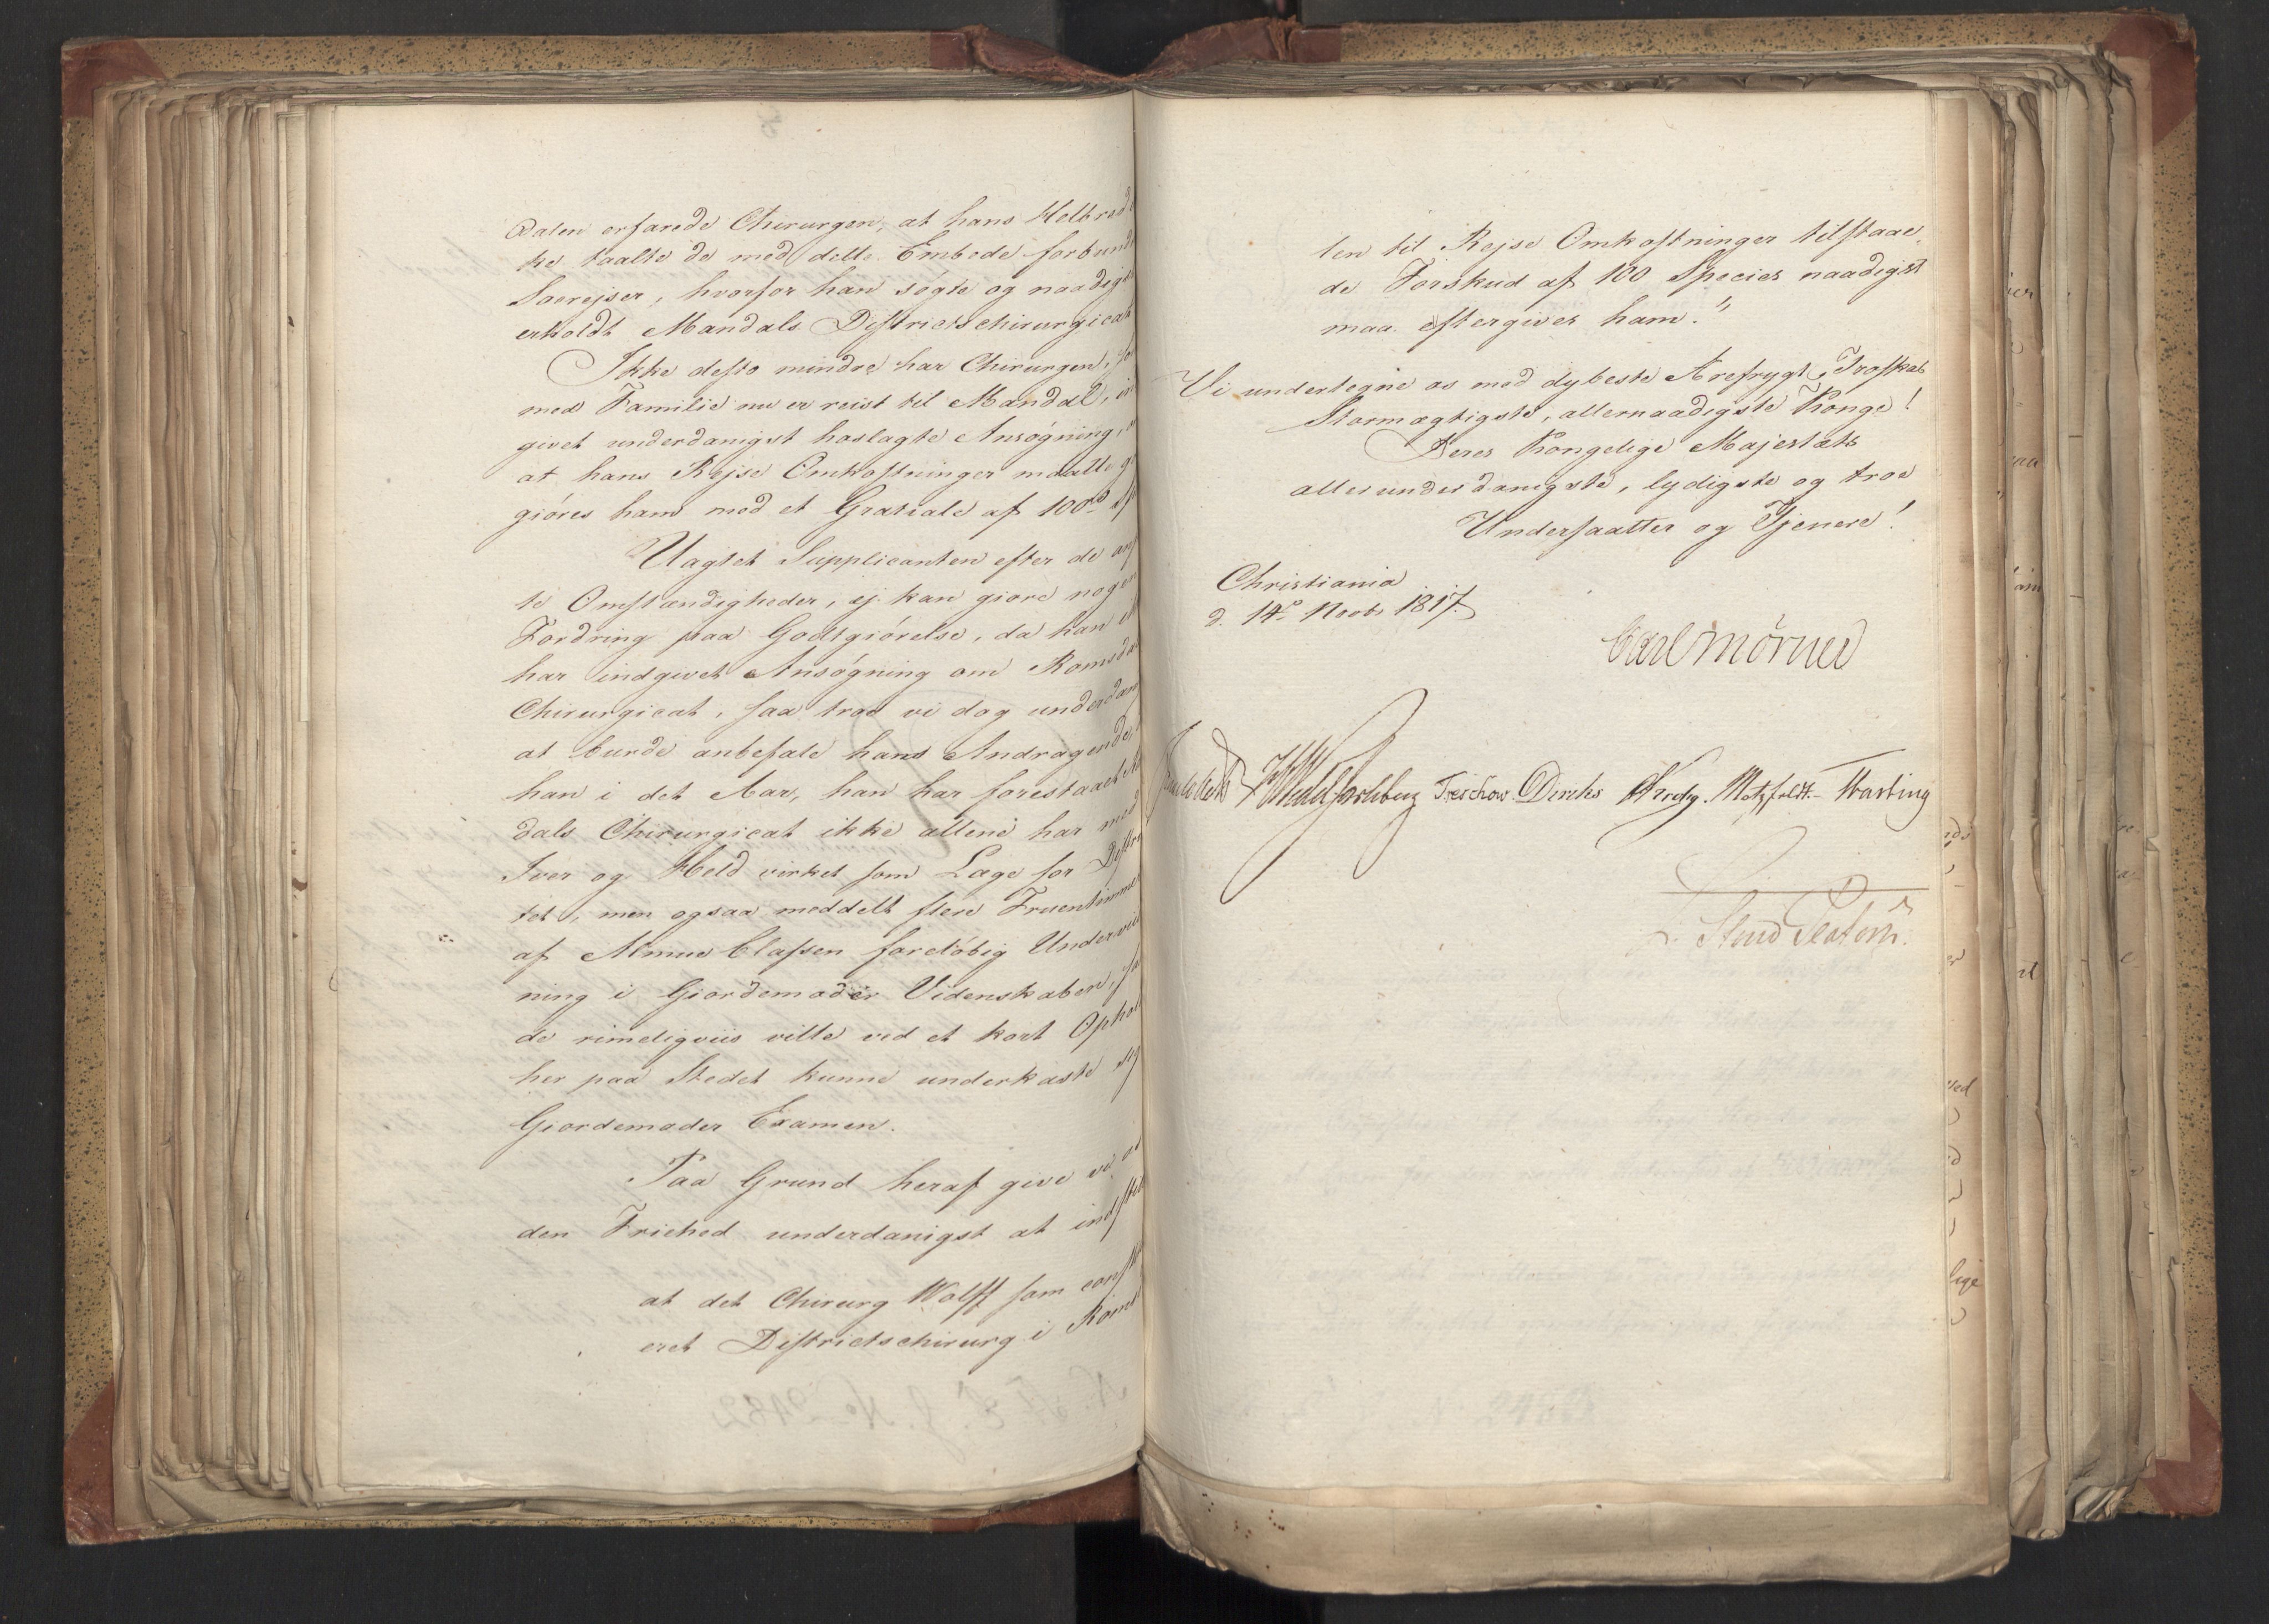 dalen erfarede Chirurgen, at hans Helbred
ke taalte de med dette Embede forbund
Søerejser, hvorfor han søgte og naadigst
erholdt Mandals Districtschirurgicat
Ikke desto mindre har Chirurgen,
med Familie nu er reist til Mandal, in
givet underdanigst hoslagte Ansøgning,
at hans Rejse Omkostninger maatte g
giøres ham med et Gratiale af 100
Uagtet Supplicanten efter de anf
te Omstændigheder, ej kan giøre nogen
Fordring paa Godtgiørelse, da han
har indgivet Ansøgning om Romsda
Chirurgicat, saa troe vi dog underdan
at burde anbefale hans Andragende,
han i det Aar, han har forestaaet
dals Chirurgicat ikke allene har med
Iver og Held virket som Læge for Distri
tet, men ogsaa meddelt flere Fruentimme
af Almue Classen foreløbig Underviis
ning i Giordemoder Videnskaben,
de rimeligviis ville ved et kort Ophol
her paa Stedet kunne underkaste sig
Giordemoder Examen.
Paa Grund heraf give vi os
den Friehed underdanigst at indstil
at det Chirurg Wolff som const
eret Districtschirurg i Roms
ten til Rejse Omkostninger tilstaae
de Forskud af 100 Species naadigst
maa eftergives ham."
Vi undertegne os med dybeste Ærefrygt, Troskab
Stormægtigste, allernaadigste Konge!
Deres Kongelige Majestæts
allerunderdanigste, lydigste og troe
Undersaatter og Tjenere!
Christiania
d. 14de Novbr 1817.
Carl Mörner
Treschow Diriks Krog. Motzfeldt.